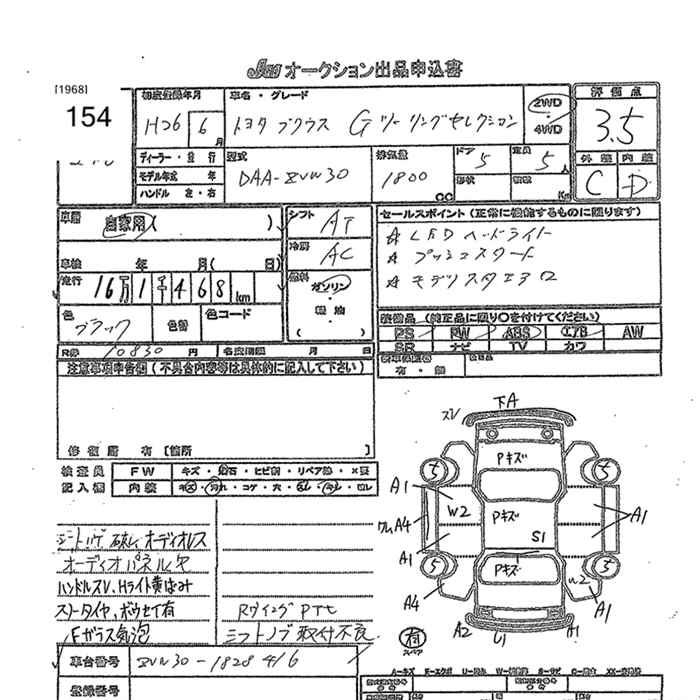 JU オークション出品申込書
[1968]
154
初度登録年月
H26 6 月
車名・グレード
トヨタ プリウス Gツーリングセレクション
2WD
4WD
評価点
3.5
外装 内装
C D
ディーラー・並行
モデル年式 年
ハンドル 左・右
型式
DAA-ZVW30
排気量
1800 CC
ドア
5
定員
5 人
形状
Kg
車歴 自家用( )
車検 年 月( 日)
走行 16万1千468 km
色
ブラック
色替
色コード
シフト AT
冷房 AC
燃料
ガソリン
軽油
( )
セールスポイント(正常に機能するものに限ります)
☆ LEDヘッドライト
☆ プッシュスタート
☆ モデリスタエアロ
装備品(純正品に限り○を付けてください)
PS PW ABS エアB AW
SR ナビ TV カワ
有・無
R券 10830 円 名変期限 月 日
注意事項申告欄(不具合内容等は具体的に記入して下さい)
修復歴 有[箇所 ]
検査員 FW キズ・飛石・ヒビ割・リペア跡・×要
記入欄 内装 キズ・汚れ・コゲ・穴
シートハゲ 破れ、オーディオレス
オーディオパネル欠
ハンドルスレ、Hライト黄ばみ
スノータイヤ、ボウセイ有
Fガラス気泡
Rウィングアト
シフトノブ取付不良
車台番号 ZVW30-1828416
登録番号
スレ 下A
Pキズ
5 5
A1
W2
Pキズ
A4
A1
S1
A1
Pキズ
5 5
A4
W2
A1
A2 U1 A1
有
スペア